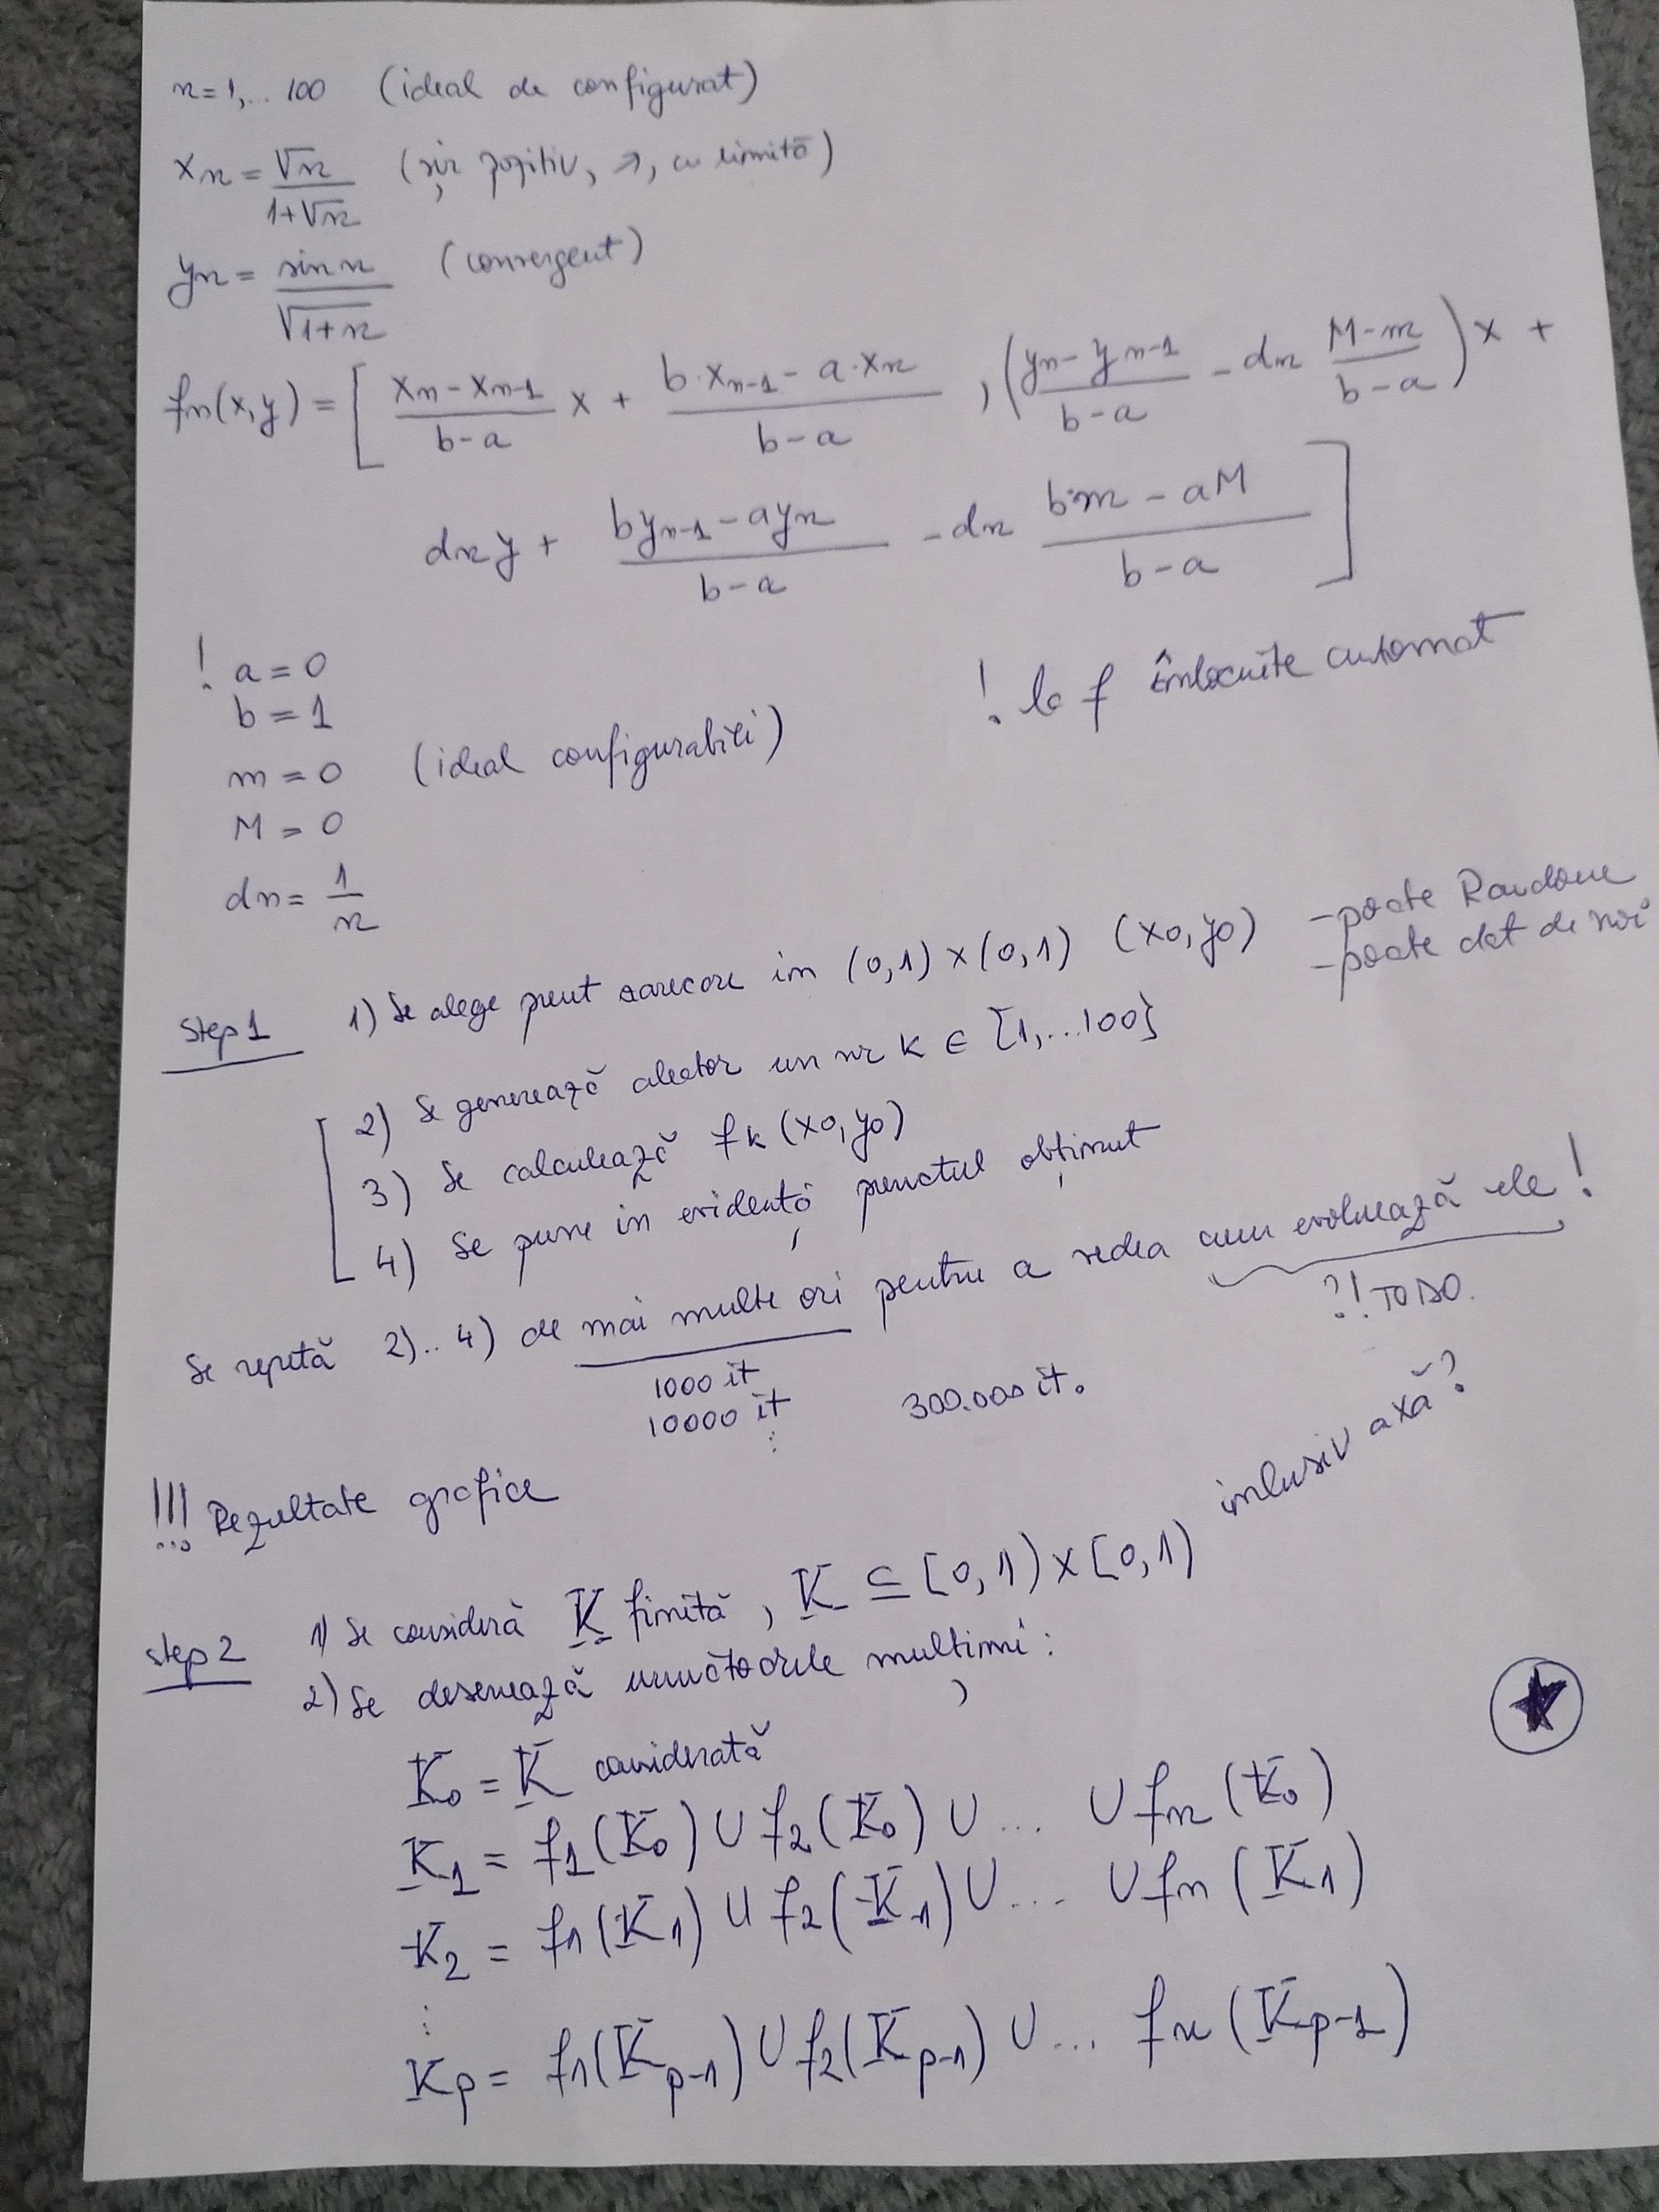 n=1,... 100 (ideal de configurat)
xn = √n / 1+√n (șir pozitiv, ↗, cu limită)
yn = sin n / √1+n (convergent)
fn(x,y) = [ xn - xn-1 / b-a x + b·xn-1 - a·xn / b-a , ( yn - yn-1 / b-a - dn M-m / b-a ) x +
dn y + b yn-1 - a yn / b-a - dn b·m - aM / b-a ]
! a = 0
b = 1
! la f înlocuite automat
m = 0 (ideal configurabili)
M = 0
dn = 1 / n
Step 1 1) Se alege punct oarecare in (0,1) x (0,1) (x0, y0) - poate Random
- poate dat de noi
2) Se generează aleator un nr k ∈ {1,...100}
3) Se calculează fk (x0, y0)
4) Se pune in evidență punctul obținut
Se repetă 2)..4) de mai multe ori pentru a vedea cum evoluează ele !
?! TODO.
1000 it
10000 it 300.000 it.
⋮
!!! Rezultate grafice
Step 2 1) Se consideră K finită, K ⊆ [0,1) x [0,1) inlusiv axă?
2) Se desenează următoarele mulțimi:
K0 = K considerată
K1 = f1(K0) ∪ f2(K0) ∪ ... ∪ fn(K0)
K2 = f1(K1) ∪ f2(K1) ∪ ... ∪ fn(K1)
⋮
Kp = f1(Kp-1) ∪ f2(Kp-1) ∪ ... fn(Kp-1)